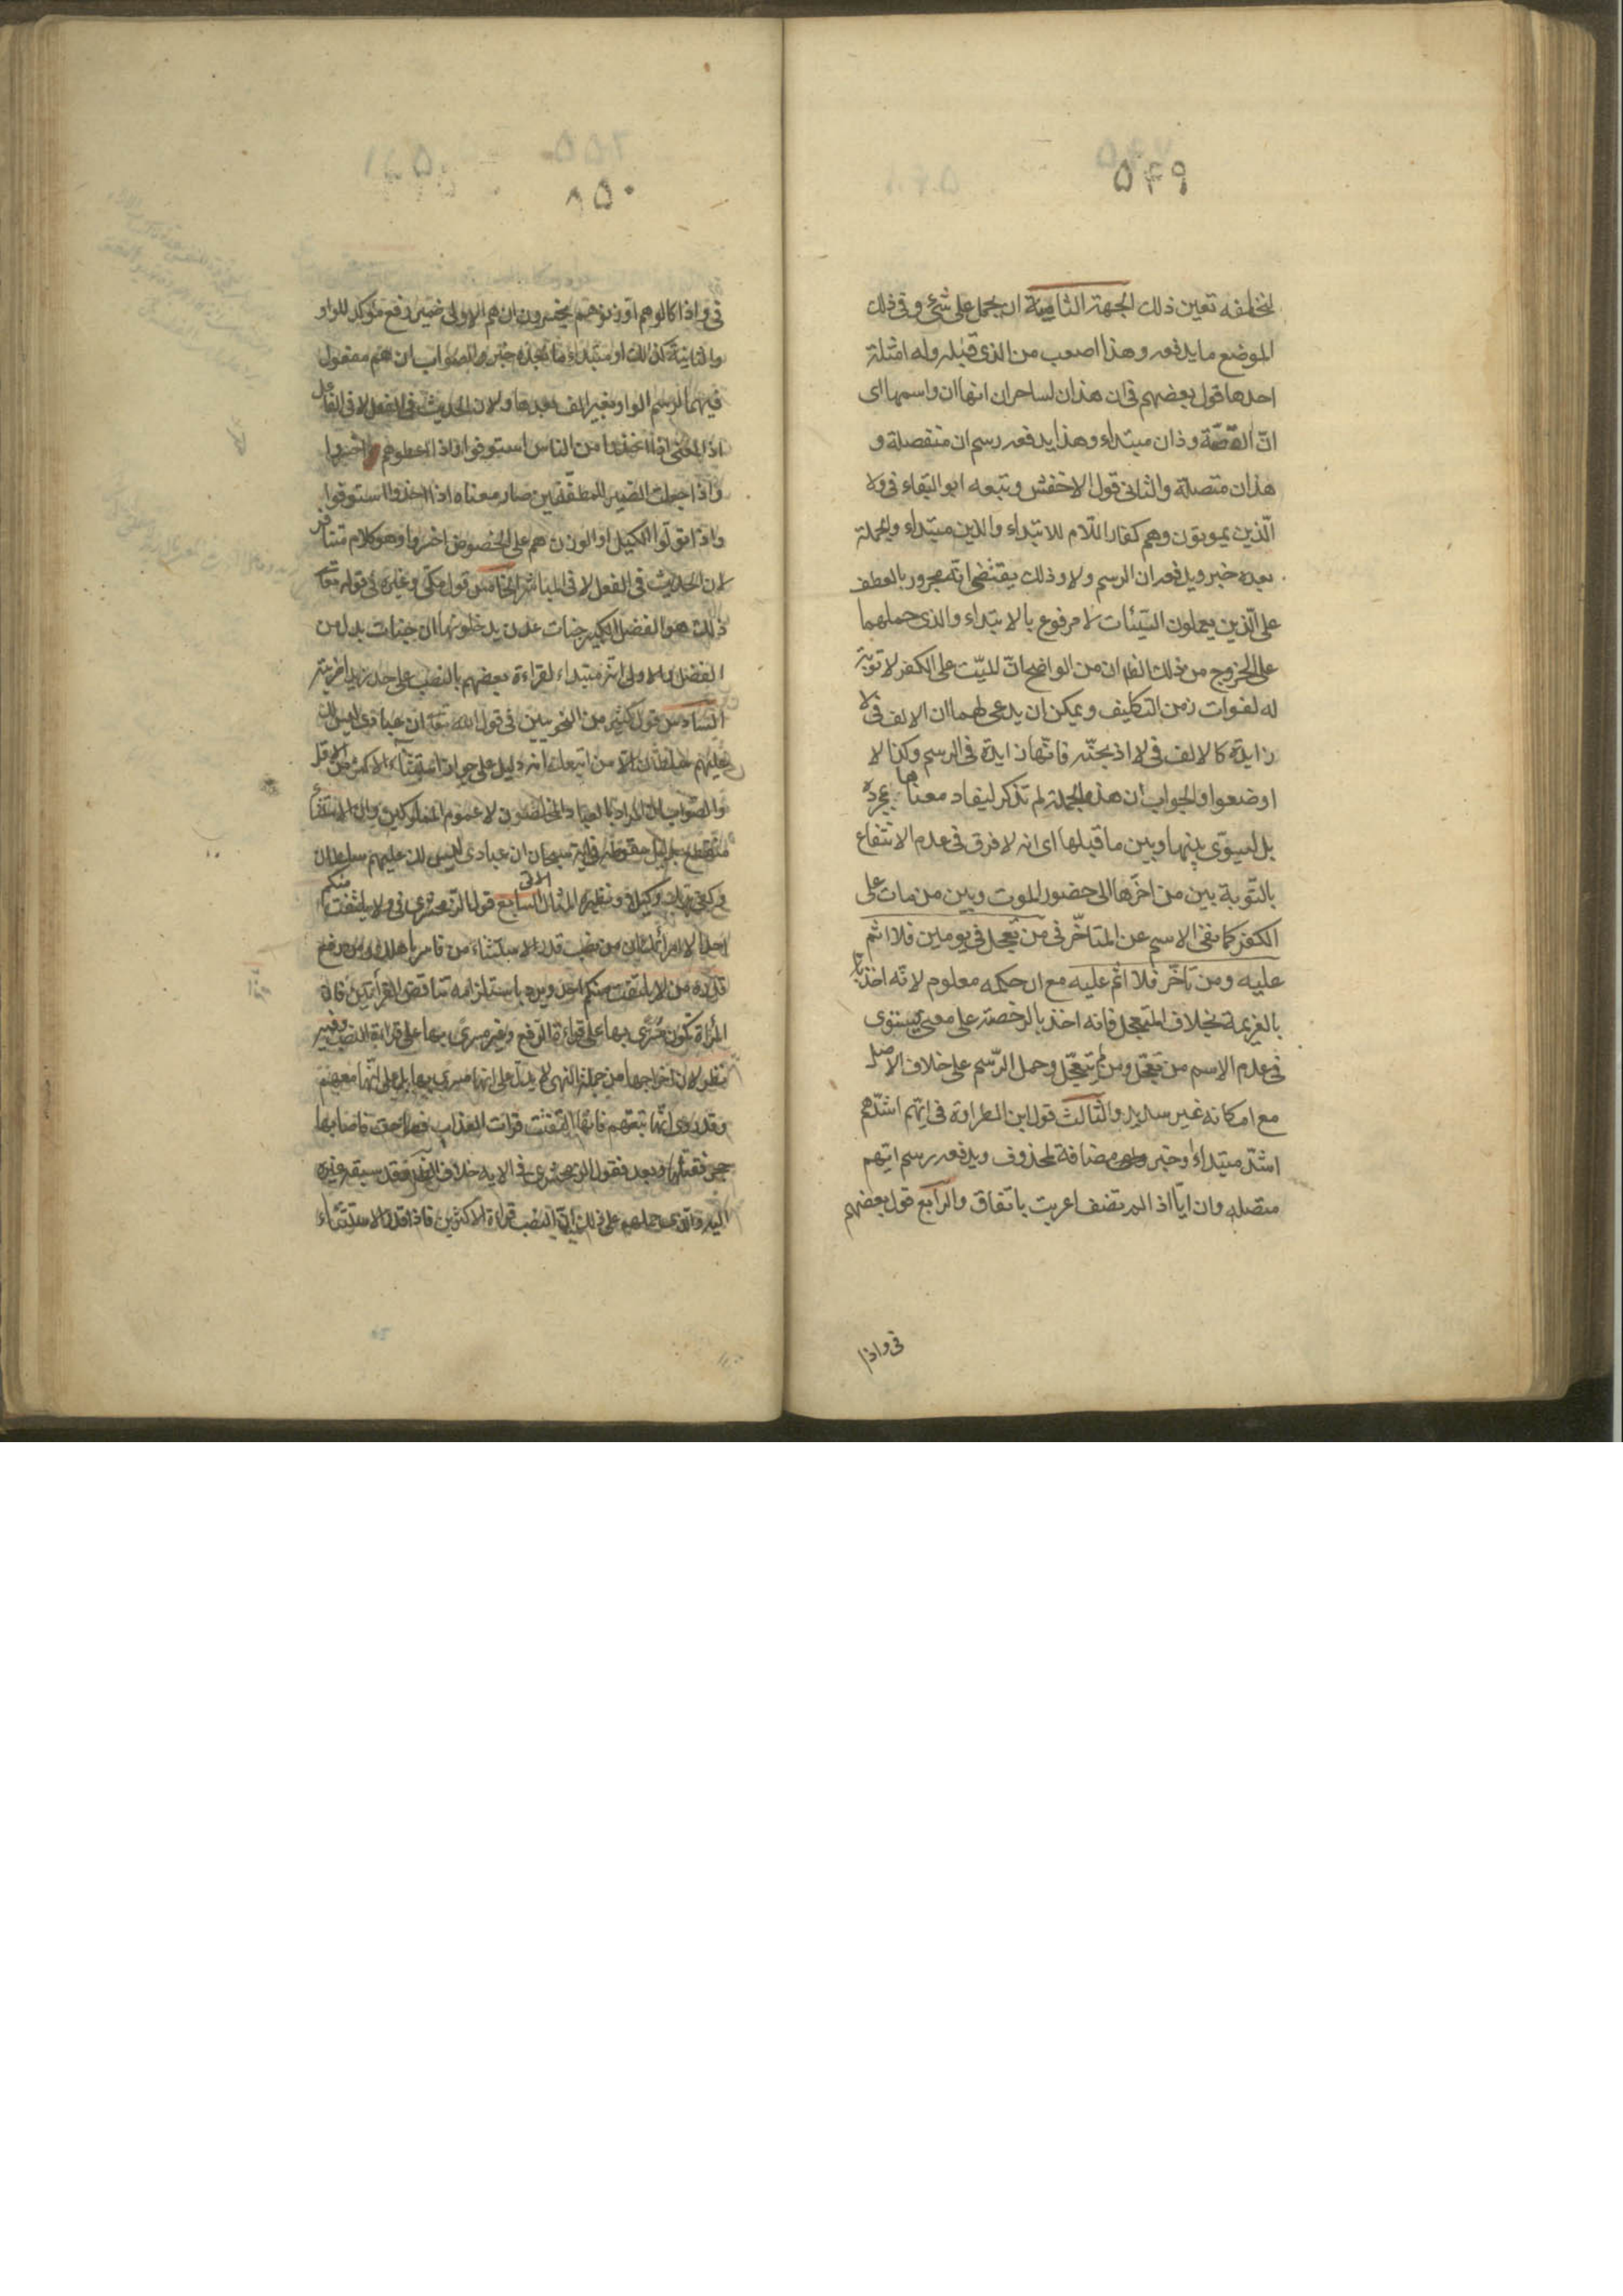 ٥٤٩
لمخالفه تعين ذلك الجهة الثامنة ان يحمل على شئ وفى ذلك
الموضع ما يدفعه وهذا اصعب من الذى قبله وله امثلة
احدها قول بعضهم فى ان هذان لساحران انها ان واسمها اى
انّ القصّة وذان مبتداء وهذا يدفعه رسم ان منفصلة و
هذان متصلة والثانى قول الاخفش وتبعه ابو البقاء فى ولا
الّذين يموتون وهم كفار اللّام للابتداء والذين مبتداء والجملة
بعده خبر ويدفعه ان الرسم ولا وذلك يقتضى انّه مجرور بالعطف
على الّذين يعملون السّيّئات لا مرفوع بالابتداء والذى حملهما
على الخروج من ذلك الظاهر ان من الواضح انّ الميّت على الكفر لا توبة
له لفوات زمن التكليف ويمكن ان يدعى لهما ان الالف فى لا
زايدة كالالف فى لا اذبحنّه فانّها زايدة فى الرسم وكذا لا
اوضعوا والجواب ان هذه الجملة لم تذكر ليفاد معناها بمجرده
بل ليسوّى بينها وبين ما قبلها اى انه لا فرق فى عدم الانتفاع
بالتّوبة بين من اخّرها الى حضور الموت وبين من مات على
الكفر كما نفى الاسم عن المتاخّر فى من تعجل فى يومين فلا اثم
عليه ومن تاخّر فلا اثم عليه مع ان حكمه معلوم لانّه اخذ
بالغريمة بخلاف المتعجل فانه اخذ بالرخصة على معنى يستوى
فى عدم الاسم من تعجّل ومن لم يتعجّل وحمل الرّسم على خلاف الاصل
مع امكانه غير سديد والثالث قول ابن الطراوة فى ايّهم اشدّ هم
اشدّ مبتداء وخبر واى مضافة لمحذوف ويدفعه رسم ايّهم
متصله وان ايّا اذا لم تضف اعربت باتفاق والرّابع قول بعضهم
فى واذا
٨٥٠
فى واذا كالوهم او وزنوهم يخسرون ان هم الاولى ضمير رفع مؤكد للواو
والثانية كذلك او مبتداء وما بعده خبره والصواب ان هم مفعول
فيهما لرسم الواو بغير الف بعدها ولان الحديث فى الفعل لا فى الفاعل
اذ المعنى اذا اخذوا من الناس استوفوا واذا اعطوهم اخسروا
واذا جعلت الضمير للمطفّفين صار معناه اذا اخذوا استوفوا
واذا تولّوا الكيل او الوزن هم على الخصوص اخسروا وهو كلام متنافر
لان الحديث فى الفعل لا فى المباشر الخامس قول مكى وغيره فى قوله تعالى
ذلك هو الفضل الكبير جنات عدن يدخلونها ان جنات بدل من
الفضل والاولى انّه مبتداء لقراءة بعضهم بالنصب على حد زيدا ضربته
السّادس قول كثير من النحويين فى قول الله تعالى ان عبادى ليس لك
عليهم سلطان الّا من اتبعك انه دليل على جواز استثناء الاكثر من الاقل
والصّواب ان المراد بالعباد المخلصون لا عموم المملوكين وان الاستثناء
منقطع بدليل سقوطه فى اية سبحان ان عبادى ليس لك عليهم سلطان
وكفى بربك وكيلا ونظيره المثال الاتى السابع قول الزمخشرى فى ولا يلتفت منكم
احد الا امرأتك ان من نصب قدر الاستثناء من فاسر باهلك ومن رفع
قدّره من لا يلتفت منكم احد ويرد باستلزامه تناقض القرأتين فان
المرأة تكون مسرى بها على قراءة الرفع وغير مسرى بها على قراءة النصب وفيه
نظر لان اخراجها من جملة النهى لا يدل على انها مسرى بها بل على انّها معهم
وقد روى انّها تبعتهم فانّها التفتت فرأت العذاب فصاحت فاصابها
حجر فقتلها وبعد فقول الزمخشرى فى الاية خلاف الظاهر فقد سبقه غيره
اليه والذى حملهم على ذلك انّ النصب قراءة الاكثرين فاذا قدّر الاستثناء